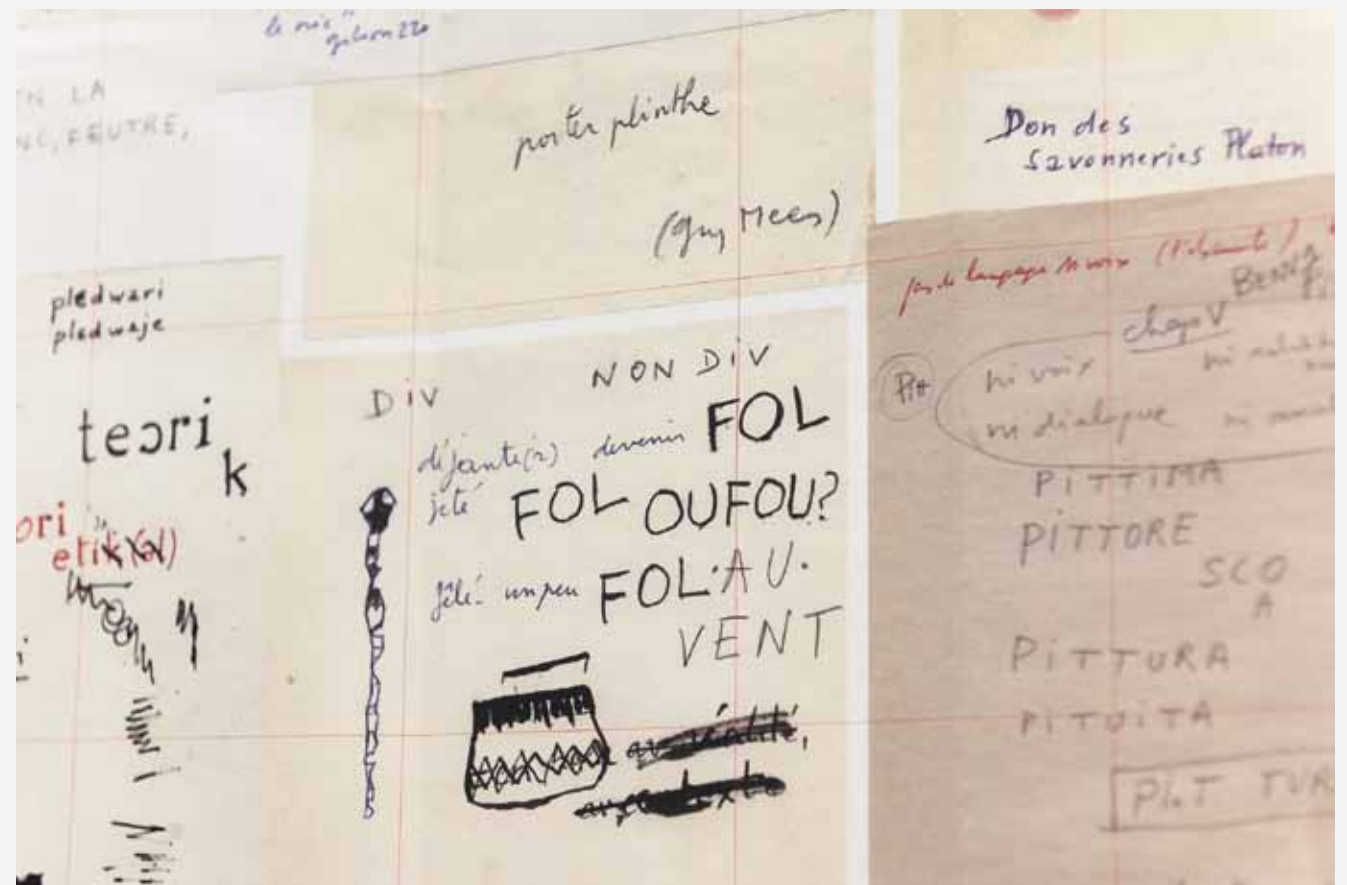 gilson 220
N LA
NC, FEUTRE,
porter plinthe
(guy Mees)
Don des
savonneries Platon
pledwari
pledwaje
teɔri
k
ori
etik(al)
DiV
NON DiV
déjante(r) devenir FOL
jeté FOL OUFOU?
fêlé un peu FOL·AU·
VENT
réalité,
pas de langage ni voix
BENNA
chap V
Pitt
ni voix
ni dialogue
PiTTiMA
PiTTORE
SCO
A
PiTTURA
PiTUiTA
Pi.T TUR